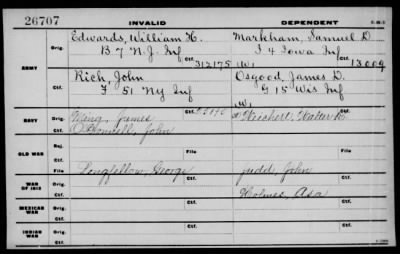 26707 INVALID DEPENDENT
Edwards, William H. Markham, Samuel D.
Orig. B 7 N.J. Inf I 4 Iowa Inf
ARMY Ctf. 312175 W1 13009
Rich, John Osgood, James D.
Orig. F 51 Ny Inf G 15 Wis Inf
Ctf. W1
NAVY Orig. King, James Weichert, Walter R.
Ctf. O'Donnell, John
OLD WAR Rej.
File File
WAR OF 1812 Orig. Longfellow, George Judd, John
Ctf. Holmes, Asa
MEXICAN WAR Orig.
Ctf. Ctf.
INDIAN WAR Orig.
Ctf. Ctf.